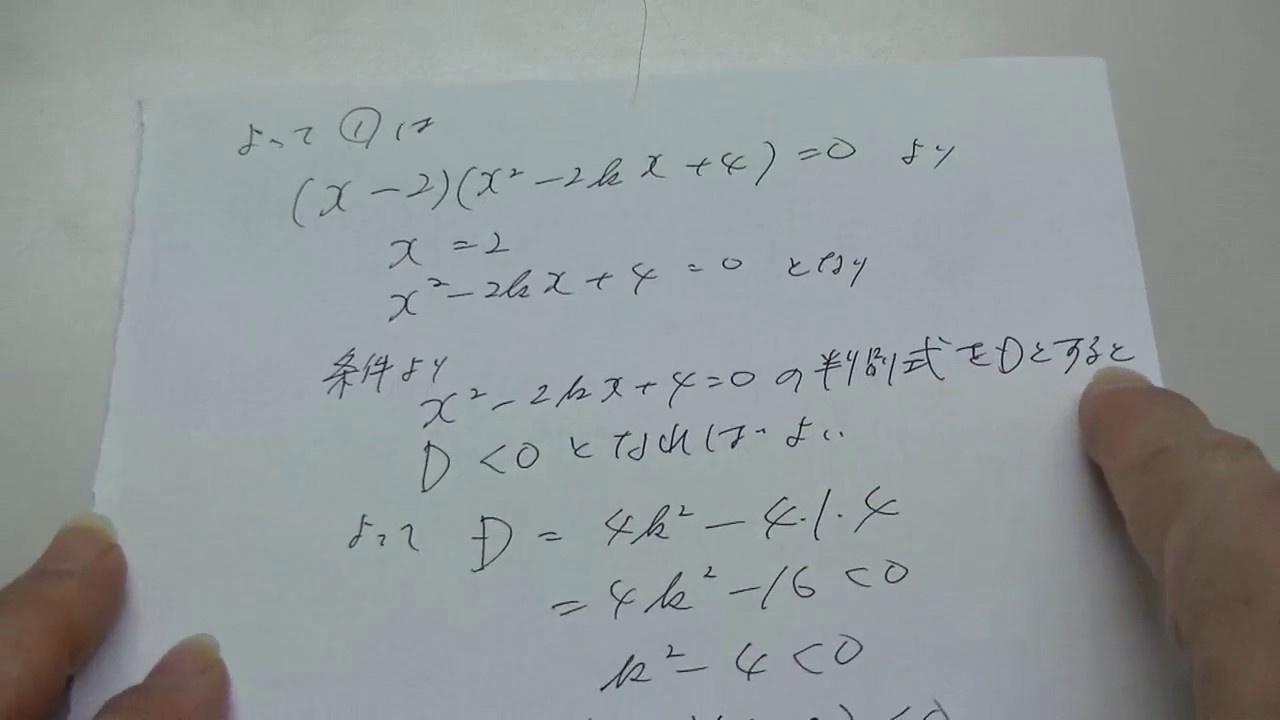 よって ① は
(x-2)(x²-2kx+4)=0 より
x=2
x²-2kx+4=0 となり
条件より
x²-2kx+4=0 の判別式をDとすると
D<0 となればよい
よって D = 4k²-4・1・4
= 4k²-16<0
k²-4<0